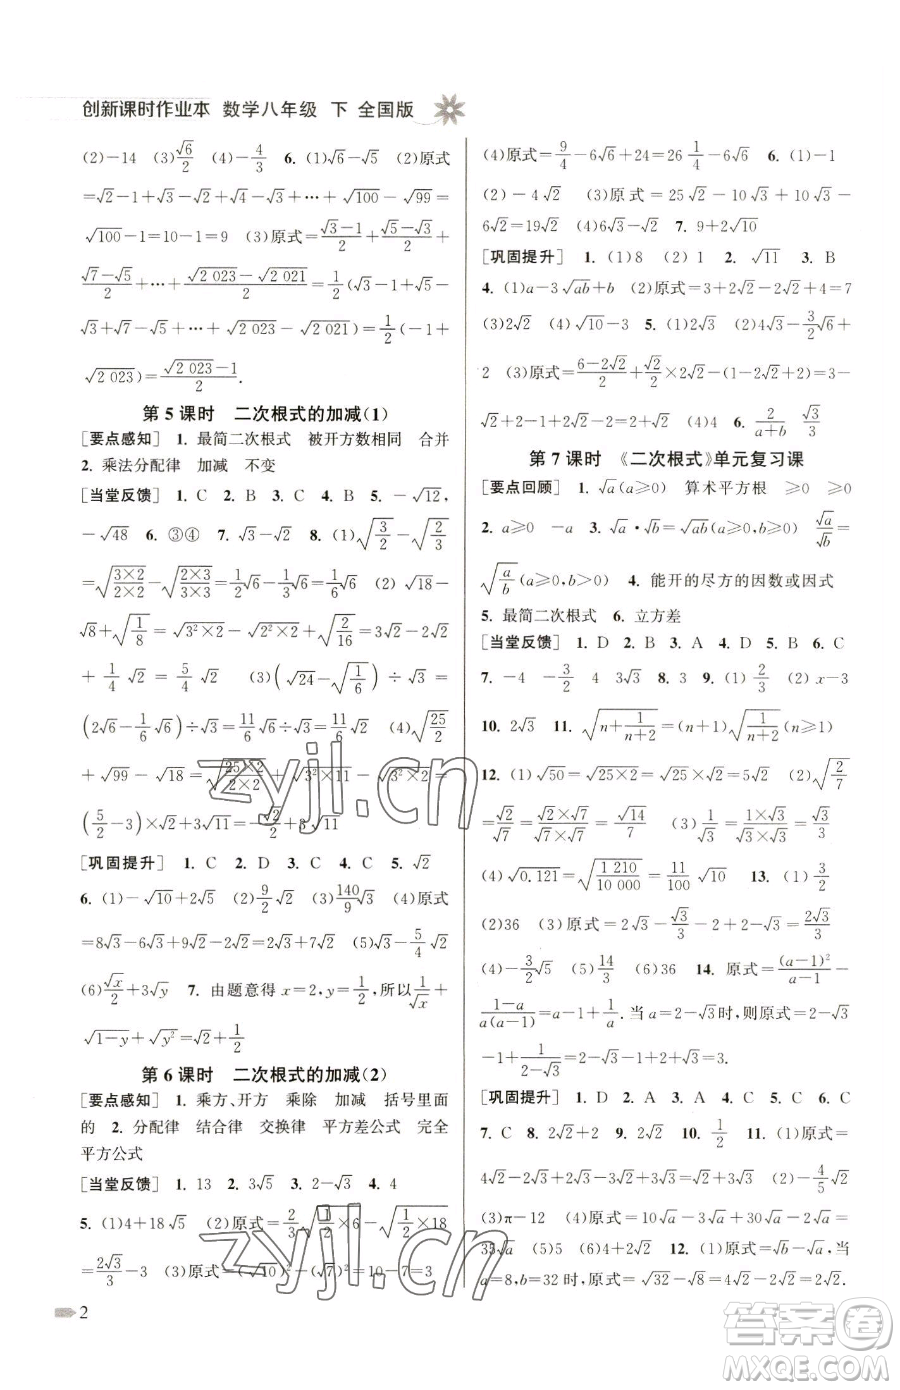 创新课时作业本 数学八年级 下 全国版
(2)-14 (3)√6/2 (4)-4/3 6. (1)√6-√5 (2)原式
=√2-1+√3-√2+√4-√3+…+√100-√99=
√100-1=10-1=9 (3)原式=(√3-1)/2+(√5-√3)/2+
(√7-√5)/2+…+(√2 023-√2 021)/2=1/2(√3-1+√5-
√3+√7-√5+…+√2 023-√2 021)=1/2(-1+
√2 023)=(√2 023-1)/2.
第 5 课时 二次根式的加减(1)
[要点感知] 1. 最简二次根式 被开方数相同 合并
2. 乘法分配律 加减 不变
[当堂反馈] 1. C 2. B 3. C 4. B 5. -√12,
-√48 6. ③④ 7. √3-√5 8. (1)√(3/2)-√(2/3)
=√((3×2)/(2×2))-√((2×3)/(3×3))=1/2√6-1/3√6=1/6√6 (2)√18-
√8+√(1/8)=√(3²×2)-√(2²×2)+√(2/16)=3√2-2√2
+1/4√2=5/4√2 (3)(√24-√(1/6))÷√3=
(2√6-1/6√6)÷√3=11/6√6÷√3=11/6√2 (4)√(25/2)
+√99-√18=√((25×2)/(2×2))+√(3²×11)-√(3²×2)=
(5/2-3)×√2+3√11=-√2/2+3√11
[巩固提升] 1. C 2. D 3. C 4. B 5. √2
6. (1)-√10+2√5 (2)9/2√2 (3)140/9√3 (4)原式
=8√3-6√3+9√2-2√2=2√3+7√2 (5)√3-5/4√2
(6)√x/2+3√y 7. 由题意得 x=2,y=1/2,所以1/√x+
√(1-y)+√(y²)=√2+1/2
第 6 课时 二次根式的加减(2)
[要点感知] 1. 乘方、开方 乘除 加减 括号里面
的 2. 分配律 结合律 交换律 平方差公式 完全
平方公式
[当堂反馈] 1. 13 2. 3√5 3. 2-√3 4. 4
5. (1)4+18√5 (2)原式=2/3√(1/2×6)-√(1/2×18)=
2√3/3-3 (3)原式=(√10)²-(√7)²=10-7=3
2
(4)原式=9/4-6√6+24=26 1/4-6√6 6. (1)-1
(2)-4√2 (3)原式=25√2-10√3+10√3-
6√2=19√2 (4)6√3-√2 7. 9+2√2
[巩固提升] 1. (1)8 (2)1 2. √11 3. B
4. (1)a-3√ab+b (2)原式=3+2√2-2√2+4=7
(3)2√2 (4)√10-3 5. (1)2√3 (2)4√3/3√6+
2 (3)原式=(6-2√2)/√2+√2×2√2-(1-2√2+2)=3
√2+2-1+2√2-2=5√2-1 (4)4 6. 2/(a+b) √3/3
第 7 课时 《二次根式》单元复习课
[要点回顾] 1. √a(a≥0) 算术平方根 ≥0 ≥0
2. a≥0 -a 3. √a·√b=√ab(a≥0,b≥0) √a/√b
=√(a/b)(a≥0,b>0) 4. 能开的尽方的因数或因式
5. 最简二次根式 6. 立方差
[当堂反馈] 1. D 2. B 3. A 4. D 5. B 6. C
7. -4 -3/2 4 3√3 8. 3 9. (1)2/3 (2)x-3
10. 2√3 11. √(n+1/(n+2))=(n+1)√(1/(n+2))(n≥1)
12. (1)√50=√(25×2)=√25×√2=5√2 (2)√(2/7)
=√2/√7=(√2×√7)/(√7×√7)=√14/7 (3)1/√3=(1×√3)/(√3×√3)=√3/3
(4)√0.121=√(1 210/10 000)=11/100√10 13. (1)3/2
(2)36 (3)原式=2√3-√3/3-2+2-√3=2√3/3
(4)-3/2√5 (5)14/3 (6)36 14. 原式=(a-1)²/(a-1)-
(1-a)/(a(a-1))=a-1+1/a.当 a=2-√3时,原式=2-√3
-1+1/(2-√3)=2-√3-1+2+√3=3
[巩固提升] 1. C 2. B 3. A 4. D 5. C 6. C
7. C 8. 2√2+2 9. 2√3 10. 1/2 11. (1)原式=
4√2-2√2+8√2=10√2 (2)-4/5√5
(3)π-12 (4)原式=10√a-3√a+30√a-2√a=
35√a (5)5 (6)5-2√6 12. (1)原式=√b-√a,当
a=8,b=32 时,原式=√32-√8=4√2-2√2=2√2.
zyjl.cn
zyjl.cn
答案圈
MXQE.COM